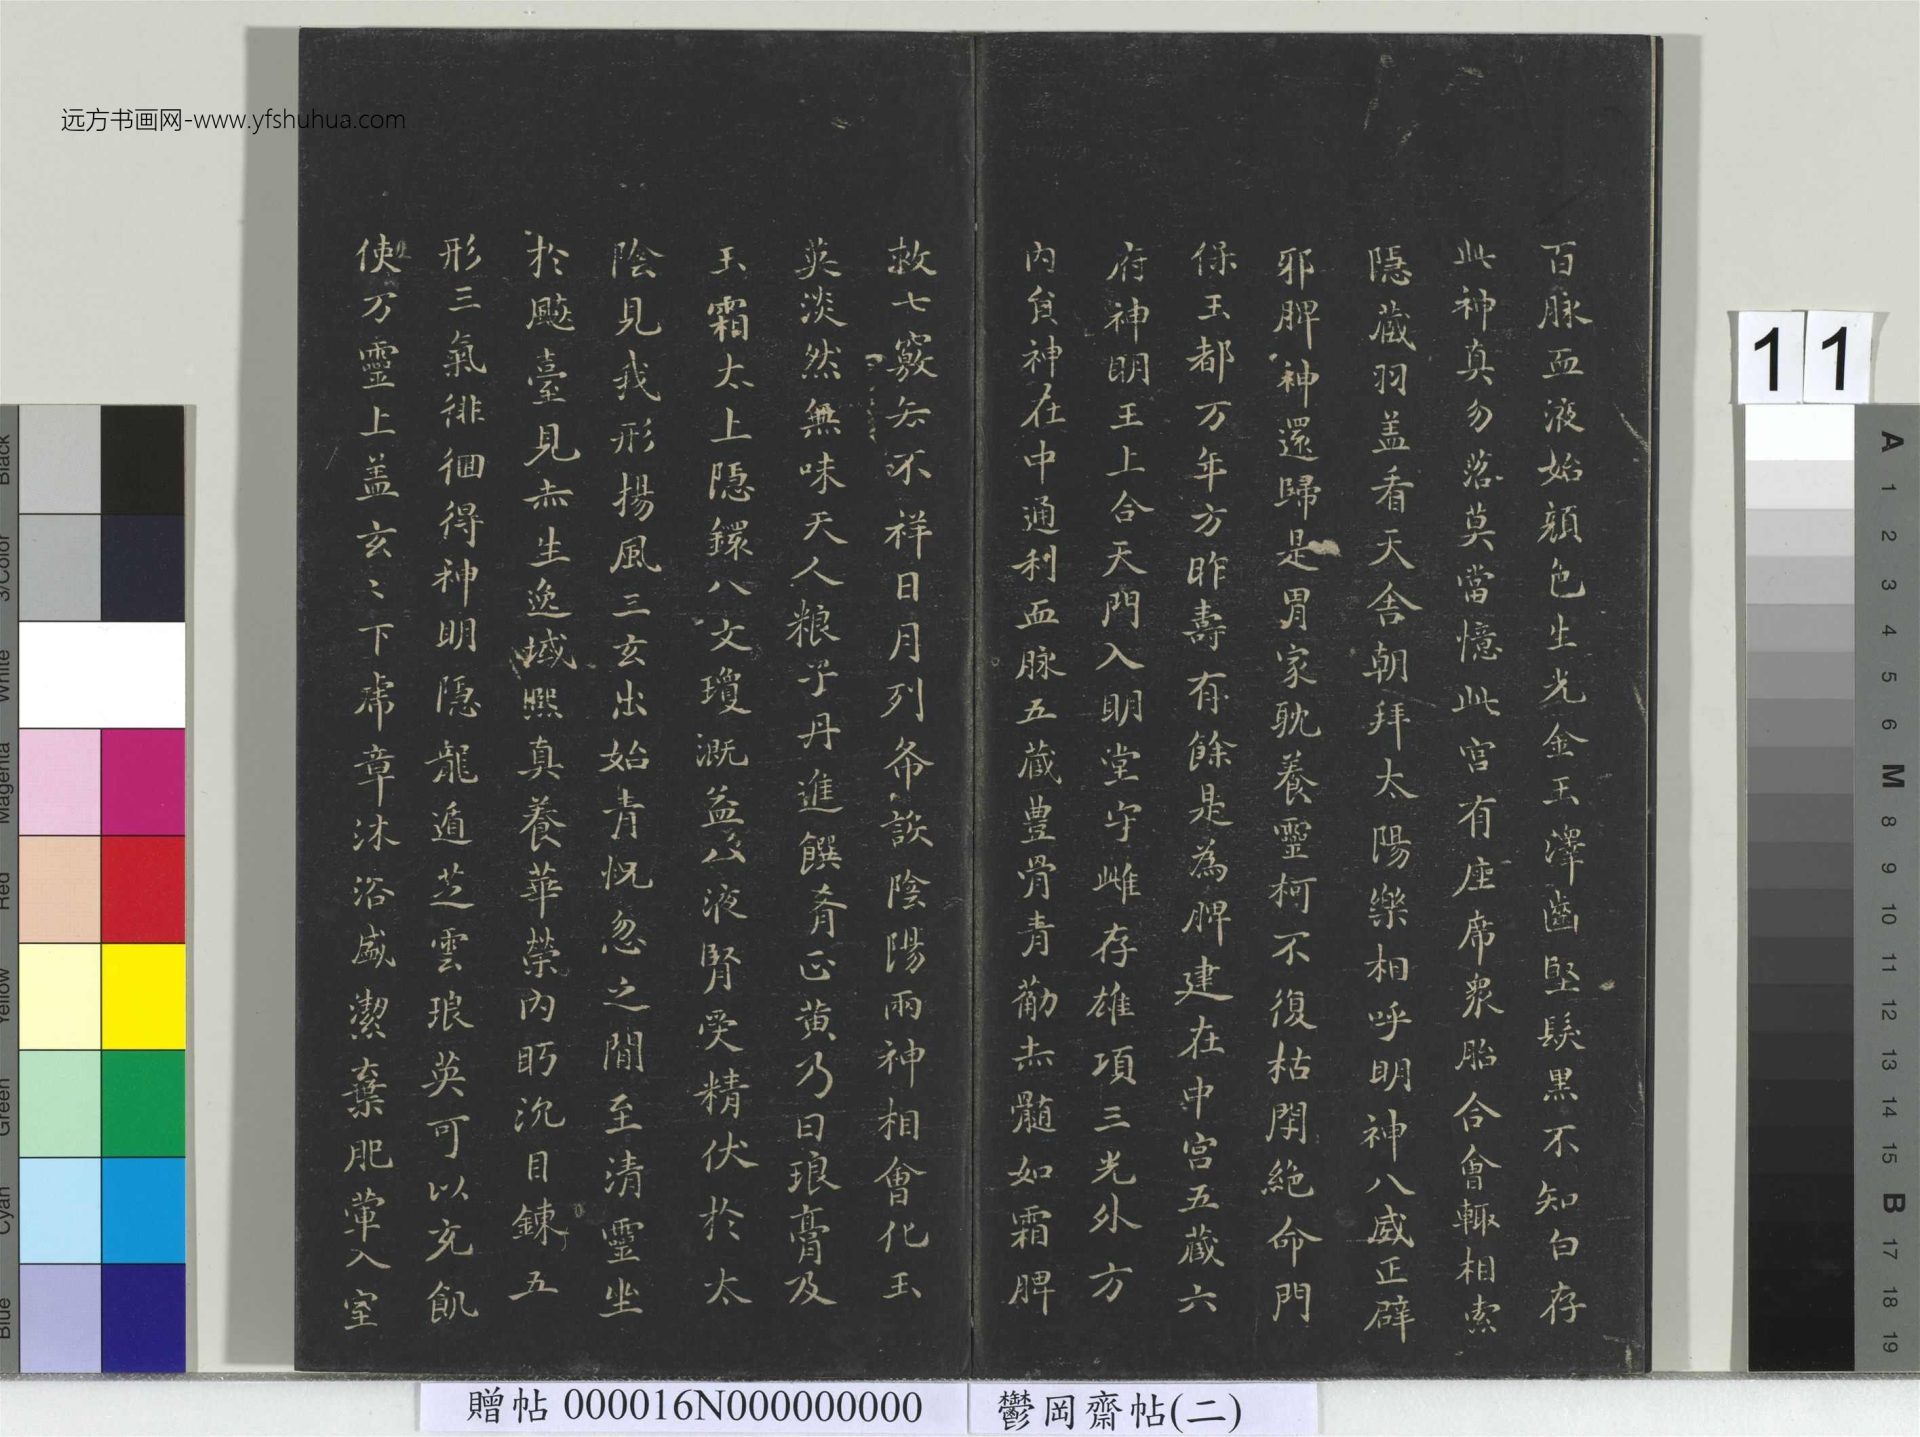 远方书画网-www.yfshuhua.com
百脉血液始顔色生光金玉澤齒堅髮黒不知白存
此神真勿落莫當憶此宫有座席衆胎合會輙相索
隱蔵羽盖看天舍朝拜太陽樂相呼明神八威正辟
邪脾神還歸是胃家耽養靈柯不復枯閇絶命門
保玉都万年方昨壽有餘是為脾建在中宫五蔵六
府神明王上合天門入明堂守雌存雄項三光外方
内負神在中通利血脉五蔵豊骨青葡赤髓如霜脾
救七竅去不祥日月列布設陰陽兩神相會化玉
英淡然無味天人粮子丹進饌肴正黄乃曰琅膏及
玉霜太上隱鐶八文瓊溉益八液腎受精伏於太
陰見我形揚風三玄出始青怳忽之間至清靈坐
於飈臺見赤生逸域熙真養華榮内盻沉目錬五
形三氣徘徊得神明隱龍遁芝雲琅英可以充飢
使万靈上盖玄〻下虎章沐浴盛潔棄肥葷入室
11
贈帖 000016N000000000
鬱岡齋帖(二)
Black
3/Color
White
Magenta
Red
Yellow
Green
Cyan
Blue
A
1
2
3
4
5
6
M
8
9
10
11
12
13
14
15
B
17
18
19